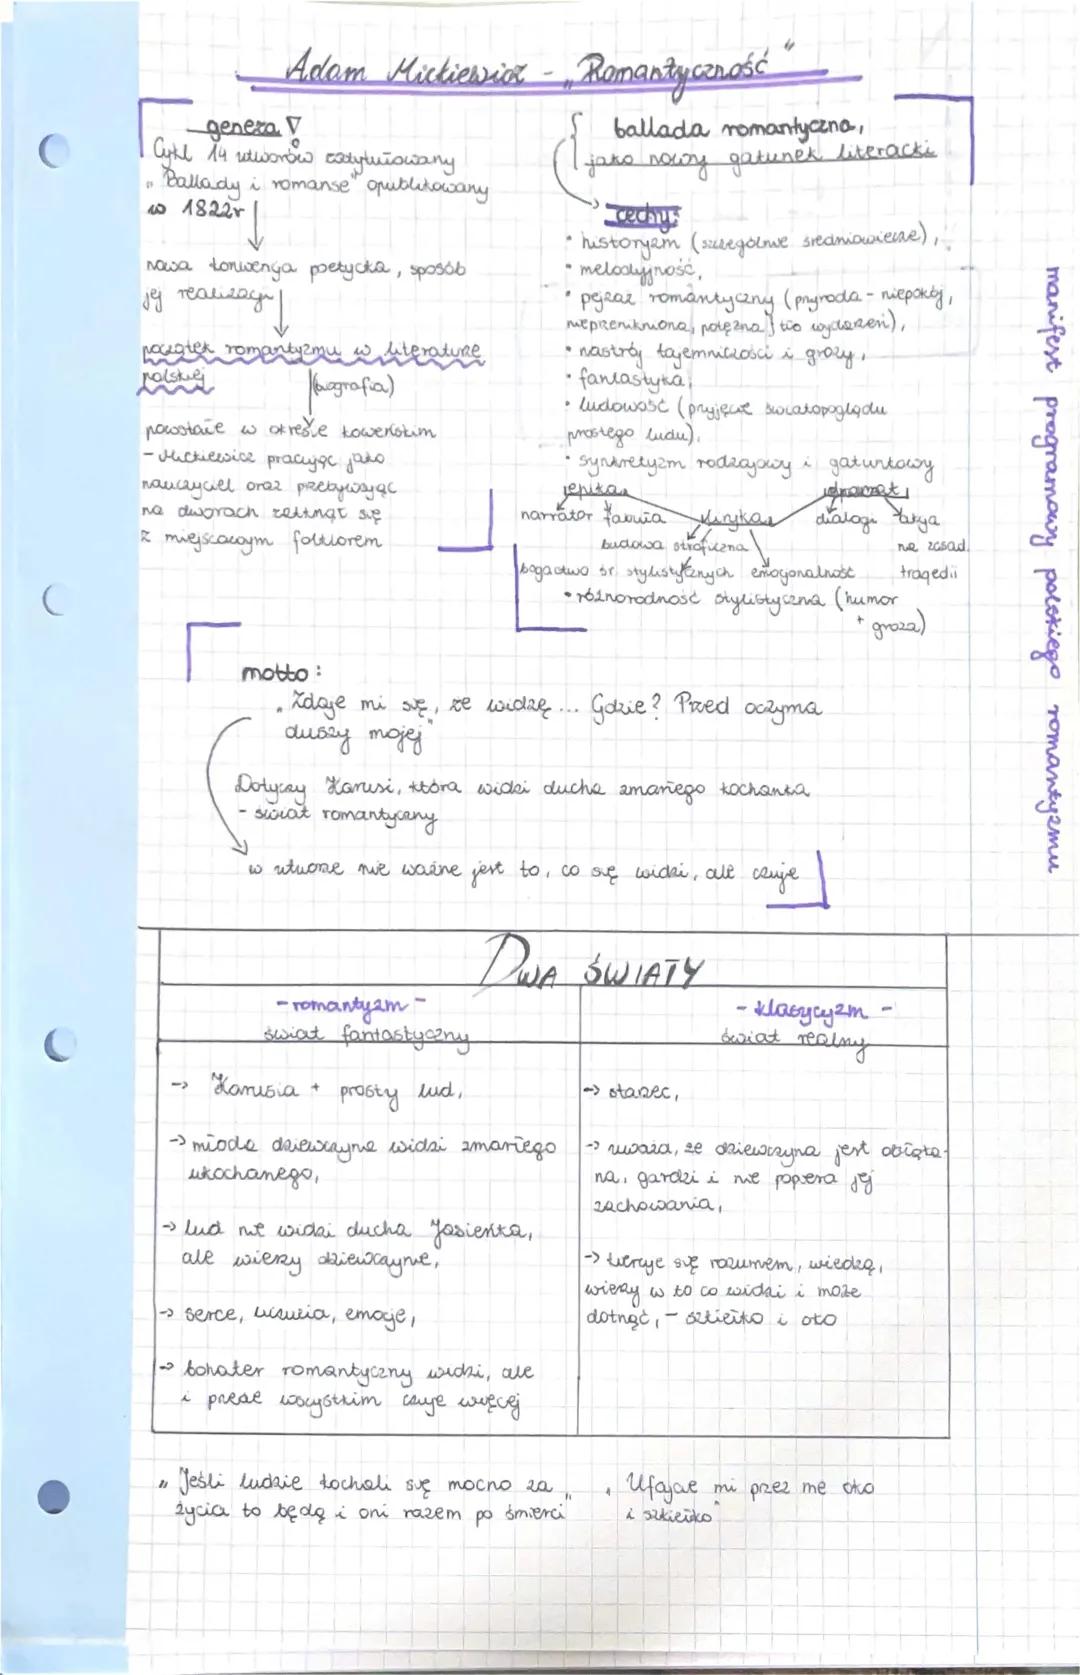 Adam Mickiewicz - „Romantyczność"
geneza
Cykl 14 utworów zatytułowany
„Ballady i romanse" opublikowany
w 1822r
nowa konwencja poetycka, sposób
jej realizacji
początek romantyzmu w literaturze
polskiej
(biografia)
powstałe w okresie kowieńskim
- Mickiewicz pracując jako
nauczyciel oraz przebywając
na dworach zetknął się
z miejscowym folklorem
ballada romantyczna,
jako nowy gatunek literacki
cechy:
• historyzm (szczególnie średniowieczne),
• melodyjność,
• pejzaż romantyczny (przyroda - niepokój,
nieprzenikniona, potężna } tło wydarzeń),
• nastrój tajemniczości i grozy,
• fantastyka,
• ludowość (przyjęcie światopoglądu
prostego ludu),
• synkretyzm rodzajowy i gatunkowy
epika dramat
narrator fabuła liryka dialogi akcja
budowa stroficzna na zasad.
bogactwo śr. stylistycznych emocjonalność tragedii
• różnorodność stylistyczna (humor
+ groza)
manifest programowy polskiego romantyzmu
motto:
„Zdaje mi się, że widzę... Gdzie? Przed oczyma
duszy mojej"
Dotyczy Karusi, która widzi ducha zmarłego kochanka
- świat romantyczny
w utworze nie ważne jest to, co się widzi, ale czuje
DWA ŚWIATY
- romantyzm -
świat fantastyczny
- klasycyzm -
świat realny
-> Karusia + prosty lud,
-> młoda dziewczyna widzi zmarłego
ukochanego,
-> lud nie widzi ducha Jasieńka,
ale wierzy dziewczynie,
-> serce, uczucia, emocje,
-> bohater romantyczny widzi, ale
i przede wszystkim czuje więcej
-> starzec,
-> uważa, że dziewczyna jest obłąka-
na, gardzi i nie popiera jej
zachowania,
-> kieruje się rozumem, wiedzą,
wierzy w to co widzi i może
dotnąć, - szkiełko i oko
„Jeśli ludzie kochali się mocno za
życia to będą i oni razem po śmierci"
„Ufajcie mi przez me oko
i szkiełko"